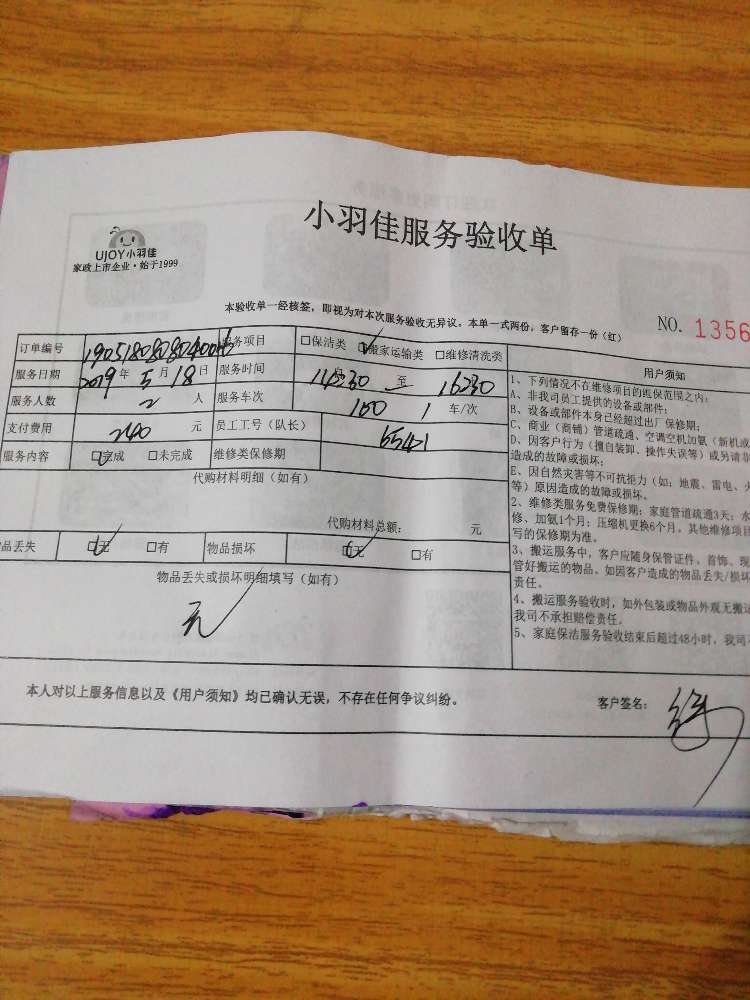 小羽佳服务验收单
UJOY小羽佳
家政上市企业·始于1999
本验收单一经核签，即视为对本次服务验收无异议。本单一式两份，客户留存一份（红）
NO. 1356
订单编号 服务项目 □保洁类 ☑搬家运输类 □维修清洗类
服务日期 2019年5月18日 服务时间 至 16:30
服务人数 2 人 服务车次 1 车/次
支付费用 240 元 员工工号（队长）
服务内容 ☑完成 □未完成 维修类保修期
代购材料明细（如有）
代购材料总额： 元
品丢失 ☑无 □有 物品损坏 ☑无 □有
物品丢失或损坏明细填写（如有）
无
用户须知
1、下列情况不在维修项目的质保范围之内：
A、非我司员工提供的设备或部件；
B、设备或部件本身已经超过出厂保修期；
C、商业（商铺）管道疏通、空调空机加氨（新机或
D、因客户行为（擅自装卸、操作失误等）或另请非
造成的故障或损坏；
E、因自然灾害等不可抗拒力（如：地震、雷电、火
等）原因造成的故障或损坏。
2、维修类服务免费保修期：家庭管道疏通3天；水
修、加氨1个月；压缩机更换6个月，其他维修项目
写的保修期为准。
3、搬运服务中，客户应随身保管证件、首饰、现
管好搬运的物品。如因客户造成的物品丢失/损坏
责任。
4、搬运服务验收时，如外包装或物品外观无搬运
我司不承担赔偿责任。
5、家庭保洁服务验收结束后超过48小时，我司不
本人对以上服务信息以及《用户须知》均已确认无误，不存在任何争议纠纷。
客户签名：